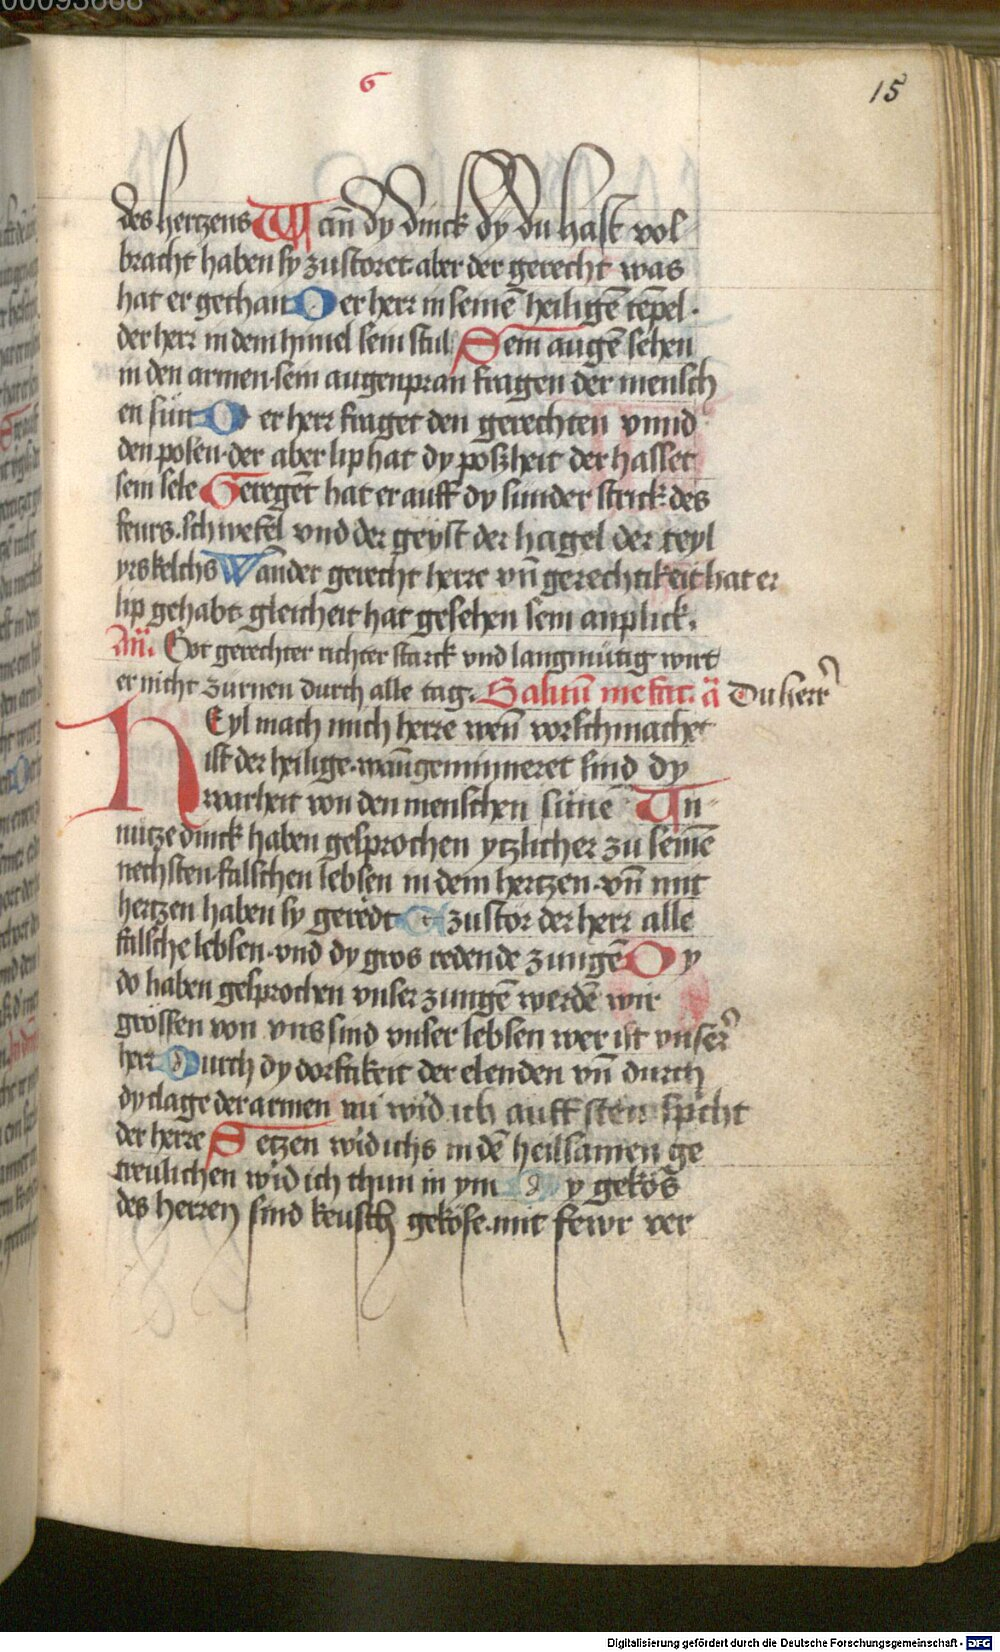 00093668
6
15
des hertzens Wan̄ dy dinck dy du hast vol
bracht haben sy zustoret. aber der gerecht was
hat er gethan Der herr in seinē heiligē tēpel.
der herr in dem himel sein stul Sein augē sehen
in den armen. sein augenpran fragen der mensch
en sün Der herr fraget den gerechten vnnd
den posen. der aber lip hat dy poßheit der hasset
sein sele Geregēt hat er auff dy sunder strick des
feurs. schwefel vnd der geyst der hagel der teyl
yrs kelchs Wan der gerecht herre vn̄ gerechtikeit hat er
lip gehabt gleicheit hat gesehen sein anplick.
An̄. Got gerechter richter starck vnd langmütig wirt
er nicht zurnen durch alle tag. Saluū me fac. ā Du herr
HEyl mach mich herre wen̄ vorschmachet
ist der heilige. wan̄ geminneret sind dy
warheit von den menschen süne Un
nutze dinck haben gesprochen ytzlicher zu seinē
nechsten. falschen lebsen in dem hertzen. vn̄ mit
hertzen haben sy geredt Zustor der herr alle
falsche lebsen. vnd dy gros redende zungē Dy
do haben gesprochen vnser zungē werdē wir
grössen von vns sind vnser lebsen wer ist vnser
herr Durch dy dorftikeit der elenden vn̄ durch
dy clage der armen nu wid ich auff sten spicht
der herre Setzen wid ichs in dē heilsamen ge
treulichen wid ich thun in ym Dy gekös
des herren sind keusch geköse. mit fewr ver
Digitalisierung gefördert durch die Deutsche Forschungsgemeinschaft - DFG